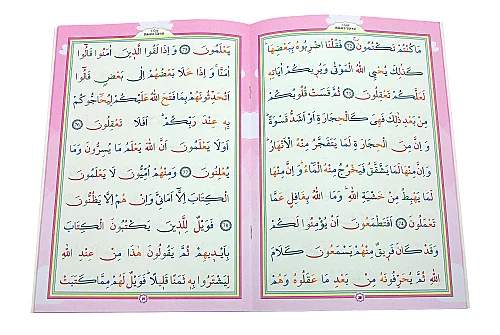 مَاكُنْتُمْ تَكْتُمُونَ ﴿٧٢﴾ فَقُلْنَا اضْرِبُوهُ بِبَعْضِهَا
كَذٰلِكَ يُحْيِي اللّٰهُ الْمَوْتٰى وَيُرِيكُمْ اٰيَاتِهِ
لَعَلَّكُمْ تَعْقِلُونَ ﴿٧٣﴾ ثُمَّ قَسَتْ قُلُوبُكُمْ
مِنْ بَعْدِ ذٰلِكَ فَهِيَ كَالْحِجَارَةِ اَوْ اَشَدُّ قَسْوَةً
وَاِنَّ مِنَ الْحِجَارَةِ لَمَا يَتَفَجَّرُ مِنْهُ الْاَنْهَارُ
وَاِنَّ مِنْهَا لَمَا يَشَّقَّقُ فَيَخْرُجُ مِنْهُ الْمَاءُ وَاِنَّ مِنْهَا
لَمَا يَهْبِطُ مِنْ خَشْيَةِ اللّٰهِ وَمَا اللّٰهُ بِغَافِلٍ عَمَّا
تَعْمَلُونَ ﴿٧٤﴾ اَفَتَطْمَعُونَ اَنْ يُؤْمِنُوا لَكُمْ
وَقَدْ كَانَ فَرِيقٌ مِنْهُمْ يَسْمَعُونَ كَلَامَ
اللّٰهِ ثُمَّ يُحَرِّفُونَهُ مِنْ بَعْدِ مَا عَقَلُوهُ وَهُمْ
يَعْلَمُونَ ﴿٧٥﴾ وَاِذَا لَقُوا الَّذِينَ اٰمَنُوا قَالُوا
اٰمَنَّا وَاِذَا خَلَا بَعْضُهُمْ اِلٰى بَعْضٍ قَالُوا
اَتُحَدِّثُونَهُمْ بِمَا فَتَحَ اللّٰهُ عَلَيْكُمْ لِيُحَاجُّوكُمْ
بِهِ عِنْدَ رَبِّكُمْ اَفَلَا تَعْقِلُونَ ﴿٧٦﴾
اَوَلَا يَعْلَمُونَ اَنَّ اللّٰهَ يَعْلَمُ مَا يُسِرُّونَ وَمَا
يُعْلِنُونَ ﴿٧٧﴾ وَمِنْهُمْ اُمِّيُّونَ لَا يَعْلَمُونَ
الْكِتَابَ اِلَّا اَمَانِيَّ وَاِنْ هُمْ اِلَّا يَظُنُّونَ
﴿٧٨﴾ فَوَيْلٌ لِلَّذِينَ يَكْتُبُونَ الْكِتَابَ
بِاَيْدِيهِمْ ثُمَّ يَقُولُونَ هٰذَا مِنْ عِنْدِ اللّٰهِ
لِيَشْتَرُوا بِهِ ثَمَنًا قَلِيلًا فَوَيْلٌ لَهُمْ مِمَّا كَتَبَتْ